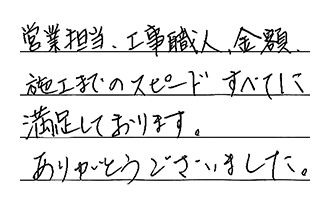 営業担当、工事職人、金額、
施工までのスピード すべてに
満足しております。
ありがとうございました。